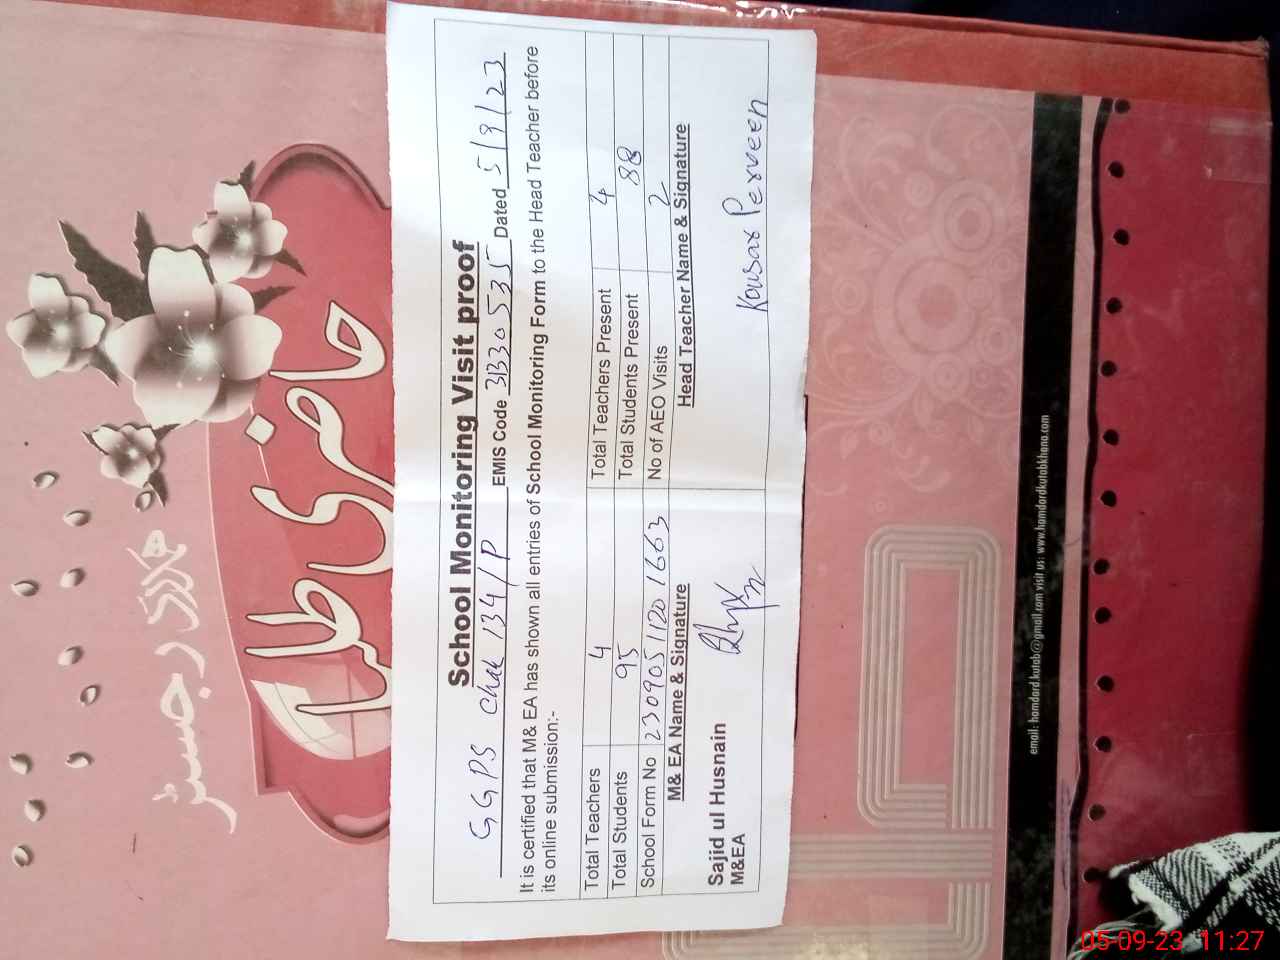 School Monitoring Visit proof
GGPS Chak 134/P EMIS Code 31330535 Dated 5/9/23
It is certified that M& EA has shown all entries of School Monitoring Form to the Head Teacher before
its online submission:-
Total Teachers 4 Total Teachers Present 4
Total Students 95 Total Students Present 88
School Form No 23090511201663 No of AEO Visits 2
M& EA Name & Signature Head Teacher Name & Signature
Sajid ul Husnain
M&EA
Kousar Perveen
ہمدرد رجسٹر
حاضری طلباء
email: hamdard.kutab@gmail.com visit us: www.hamdardkutabkhana.com
05-09-23 11:27